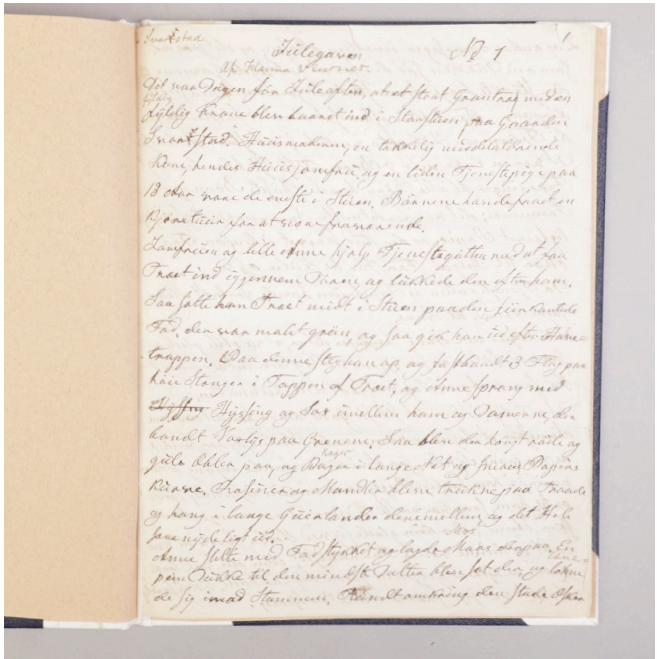 Svartsted
Julegaven No 1 1
Af Hanna Winsnes.
Det var Dagen før Juleaften, at et stort Grantræ med en
fyldig Krone blev baaret ind i Storstuen paa Gaarden
Svartsted. Huusmoderen, en temmelig middelaldrende
Kone, hendes Huusjomfru, og en liden Tjenestepige paa
13 Aar vare de eneste i Stuen. Børnene havde faaet en
Kjøretuur for at være fraværende.
Jomfruen og lille Anne hjalp Tjenestegutten med at faa
Træet ind igjennem Døren, og lukkede den efter ham.
Saa satte han Træet midt i Stuen paa den fiirkantede
Fod, der var malt grøn, og saa gik han ud efter Have-
trappen. Paa denne steg han op, og fastbandt 3 Flag paa
Stænger i Toppen af Træet, og Anne sprang med
Hyssing og Sax imellem ham og Damerne, der
bandt Voxlys paa Grenene. Saa blev der hængt røde og
gule Æbler paa, og Kager i lange Net og smaae Papirs
Kurve. Rosiner og Mandler bleve trukne paa Traade
og hang i lange Guirlander derimellem og det Hele
saae nydeligt ud.
Mos
Anne stille med Fodstykket og lagde derpaa. En
pen Dukke til den mindste Datter blev sat der, og lænne-
de sig imod Stammen. Rundt omkring den stode Æsker